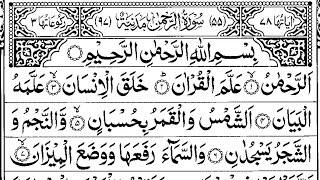 اٰیاتُهَا ٧٨ (٥٥) سُوْرَةُ الرَّحْمٰنِ مَدَنِیَّةٌ (٩٧) رُكُوْعَاتُهَا ٣
بِسْمِ اللّٰهِ الرَّحْمٰنِ الرَّحِیْمِ
اَلرَّحْمٰنُ ۙ﴿١﴾ عَلَّمَ الْقُرْاٰنَ ؕ﴿٢﴾ خَلَقَ الْاِنْسَانَ ۙ﴿٣﴾ عَلَّمَهُ
الْبَیَانَ ﴿٤﴾ اَلشَّمْسُ وَالْقَمَرُ بِحُسْبَانٍ ۪﴿٥﴾ وَّالنَّجْمُ وَ
الشَّجَرُ یَسْجُدٰنِ ﴿٦﴾ وَالسَّمَآءَ رَفَعَهَا وَوَضَعَ الْمِیْزَانَ ۙ﴿٧﴾